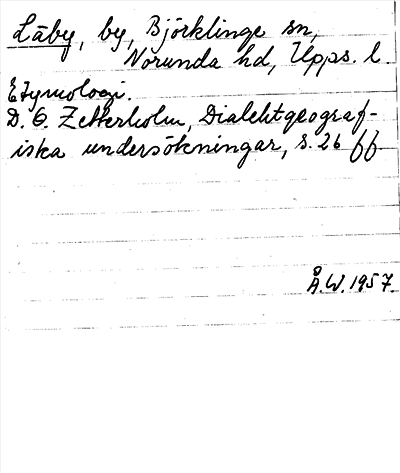 Läby, by, Björklinge sn,
Norunda hd, Upps. l.
Etymologi.
D. O. Zetterholm, Dialektgeograf-
iska undersökningar, s. 26 ff.
Å.W. 1957.